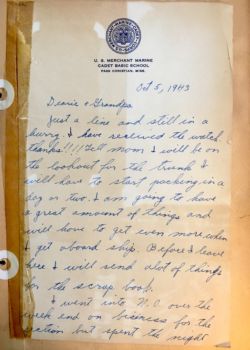 U. S. MERCHANT MARINE
CADET BASIC SCHOOL
PASS CHRISTIAN, MISS.
Oct 5, 1943
Dearie & Grandpa
Just a line and still in a
hurry. I have received the watch
thanks!!!! Tell mom I will be on
the lookout for the trunk &
will have to start packing in a
day or two. I am going to have
a great amount of things and
will have to get even more when
I get aboard ship. Before I leave
here I will send alot of things
for the scrap book.
I went into N.O. over the
week end on business for the
section but spent the night